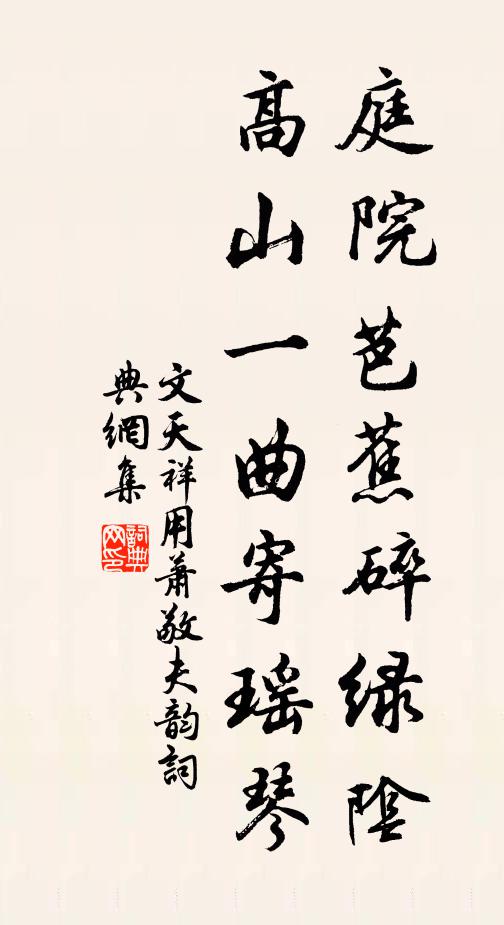 庭院芭蕉碎緑陰
高山一曲寄瑶琴
文天祥用蕭敬夫韵詞
典網集
詞典網印